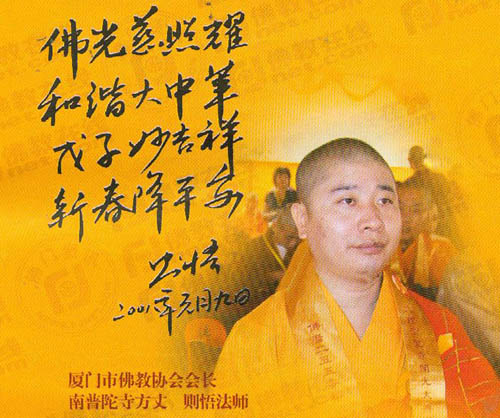 佛光慈照耀
和谐大中華
戊子妙吉祥
新春降平安
年元月九日
厦门市佛教协会会长
南普陀寺方丈 则悟法师